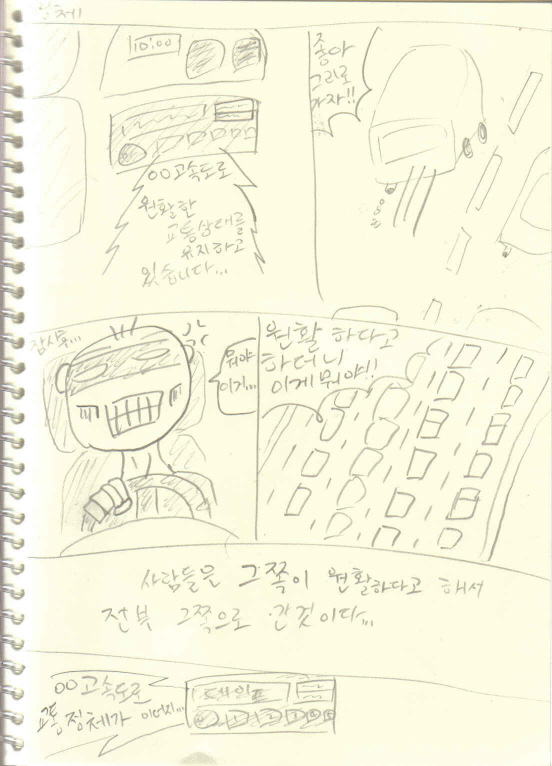 10:00
OO고속도로
원활한
교통상태를
유지하고
있습니다...
좋아
그리로
가자!!
잠시후...
뭐야
이거...
원활 하다고
하더니
이게뭐야!!
사람들은 그쪽이 원활하다고 해서
전부 그쪽으로 간것이다...
OO고속도로
교통정체가 이어지...